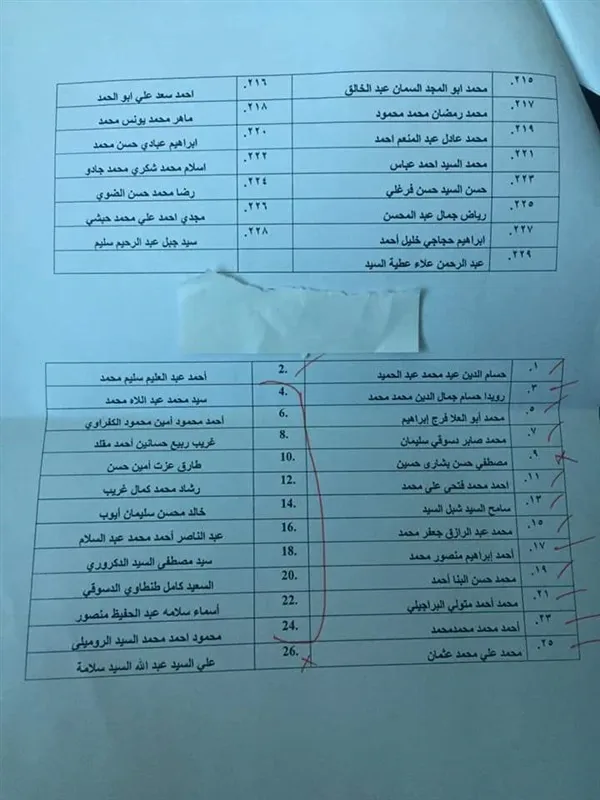 ٢١٥. محمد ابو المجد السمان عبد الخالق ٢١٦. احمد سعد علي ابو الحمد
٢١٧. محمد رمضان محمد محمود ٢١٨. ماهر محمد يونس محمد
٢١٩. محمد عادل عبد المنعم احمد ٢٢٠. ابراهيم عبادي حسن محمد
٢٢١. محمد السيد احمد عباس ٢٢٢. اسلام محمد شكري محمد جادو
٢٢٣. حسن السيد حسن فرغلي ٢٢٤. رضا محمد حسن الضوي
٢٢٥. رياض جمال عبد المحسن ٢٢٦. مجدي احمد علي محمد حبشي
٢٢٧. ابراهيم حجاجي خليل أحمد ٢٢٨. سيد جبل عبد الرحيم سليم
٢٢٩. عبد الرحمن علاء عطية السيد
١. حسام الدين عيد محمد عبد الحميد 2. أحمد عبد العليم سليم محمد
٣. رويدا حسام جمال الدين محمد محمد 4. سيد محمد عبد اللاه محمد
٥. محمد أبو العلا فرج إبراهيم 6. أحمد محمود أمين محمود الكفراوي
٧. محمد صابر دسوقي سليمان 8. غريب ربيع حسانين أحمد مقلد
٩. مصطفي حسن بشارى حسين 10. طارق عزت أمين حسن
١١. احمد محمد فتحي علي محمد 12. رشاد محمد كمال غريب
١٣. سامح السيد شبل السيد 14. خالد محسن سليمان أيوب
١٥. محمد عبد الرازق جعفر محمد 16. عبد الناصر أحمد محمد عبد السلام
١٧. أحمد إبراهيم منصور محمد 18. سيد مصطفى السيد الدكروري
١٩. محمد حسن البنا أحمد 20. السعيد كامل طنطاوي الدسوقي
٢١. محمد أحمد متولي البراجيلي 22. أسماء سلامه عبد الحفيظ منصور
٢٣. أحمد محمد محمدمحمد 24. محمود احمد محمد السيد الروميلى
٢٥. محمد علي محمد عثمان 26. علي السيد عبد الله السيد سلامة